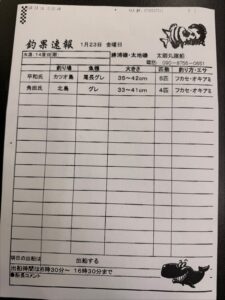 釣果速報 1月23日 金曜日
水温、14度台 勝浦磯・太地磯 太郎丸渡船
電話
釣り場 魚種 大きさ 匹数 釣り方・エサ
平和氏 カツオ島 尾長グレ 35~42cm 6匹 フカセ・オキアミ
角田氏 北島 グレ 33~41cm 4匹 フカセ・オキアミ
明日の出船は 出船する
出船時間は6時30分~ 16時30分まで
●船長コメント